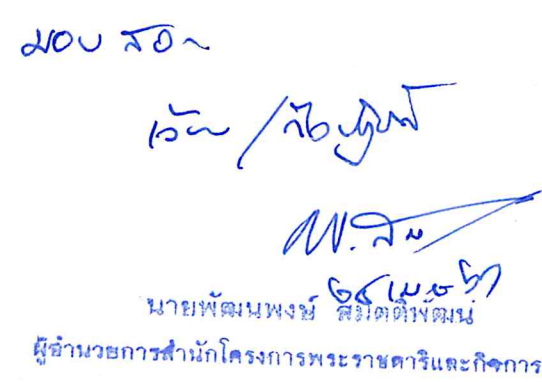 มอบ สอน
เวียน / ถือปฏิบัติ
พ. สม
๒๔ เม.ย ๖๗
นายพัฒนพงษ์ สมิตติพัฒน์
ผู้อำนวยการสำนักโครงการพระราชดำริและกิจการ